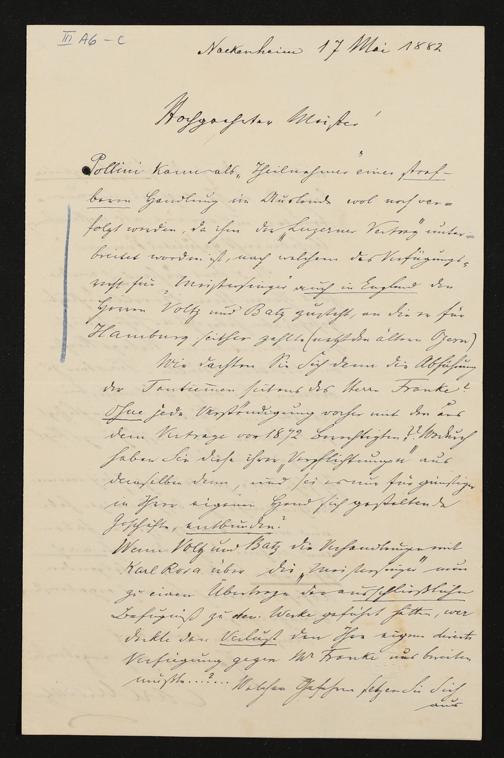 III A6 – C
Nackenheim 17 Mai 1882
Hochgeehrter Meister!
Pollini kann als „Theilnehmer" einer straf-
baren Handlung im Auslande wol noch ver-
folgt werden, da ihm der „Luzerner Vertrag" unter-
breitet worden ist, nach welchem das Verfügungs-
recht für „Meistersinger" auch in England den
Herren Voltz und Batz zusteht, an die er für
Hamburg seither zahlte (nebst den ältern Opern)
Wie dachten Sie Sich denn die Abführung
der Tantiemen seitens des Herrn Franke?
Ohne jede Verständigung vorher mit den aus
dem Vertrage von 1872 Berechtigten?? Wodurch
haben Sie diese ihrer „Verpflichtungen" aus
demselben denn, und sei es nur für günstige
in Ihrer eigenen Hand sich gestaltende
Geschäfte, entbunden?
Wenn Voltz und Batz die Verhandlungen mit
Karl Rosa über die „Meistersinger" nun
zu einem Übertrage der ausschließlichen
Befugniß zu dem Werke geführt hätten, wer
deckte den Verlust den Ihre eigene directe
Verfügung gegen Mr Franke ausbreiten
mußte....?... Welchen Gefahren setzen Sie Sich
aus